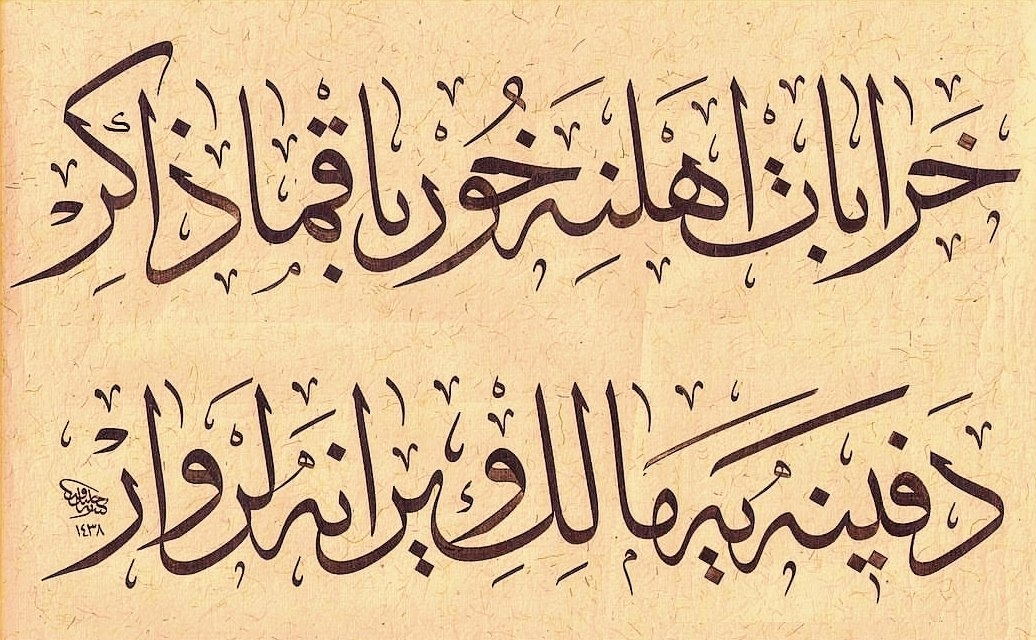 خرابات اهلنه خور باقما ذاكر
دفينه يه مالك ويرانه لر وار
١٤٣٨